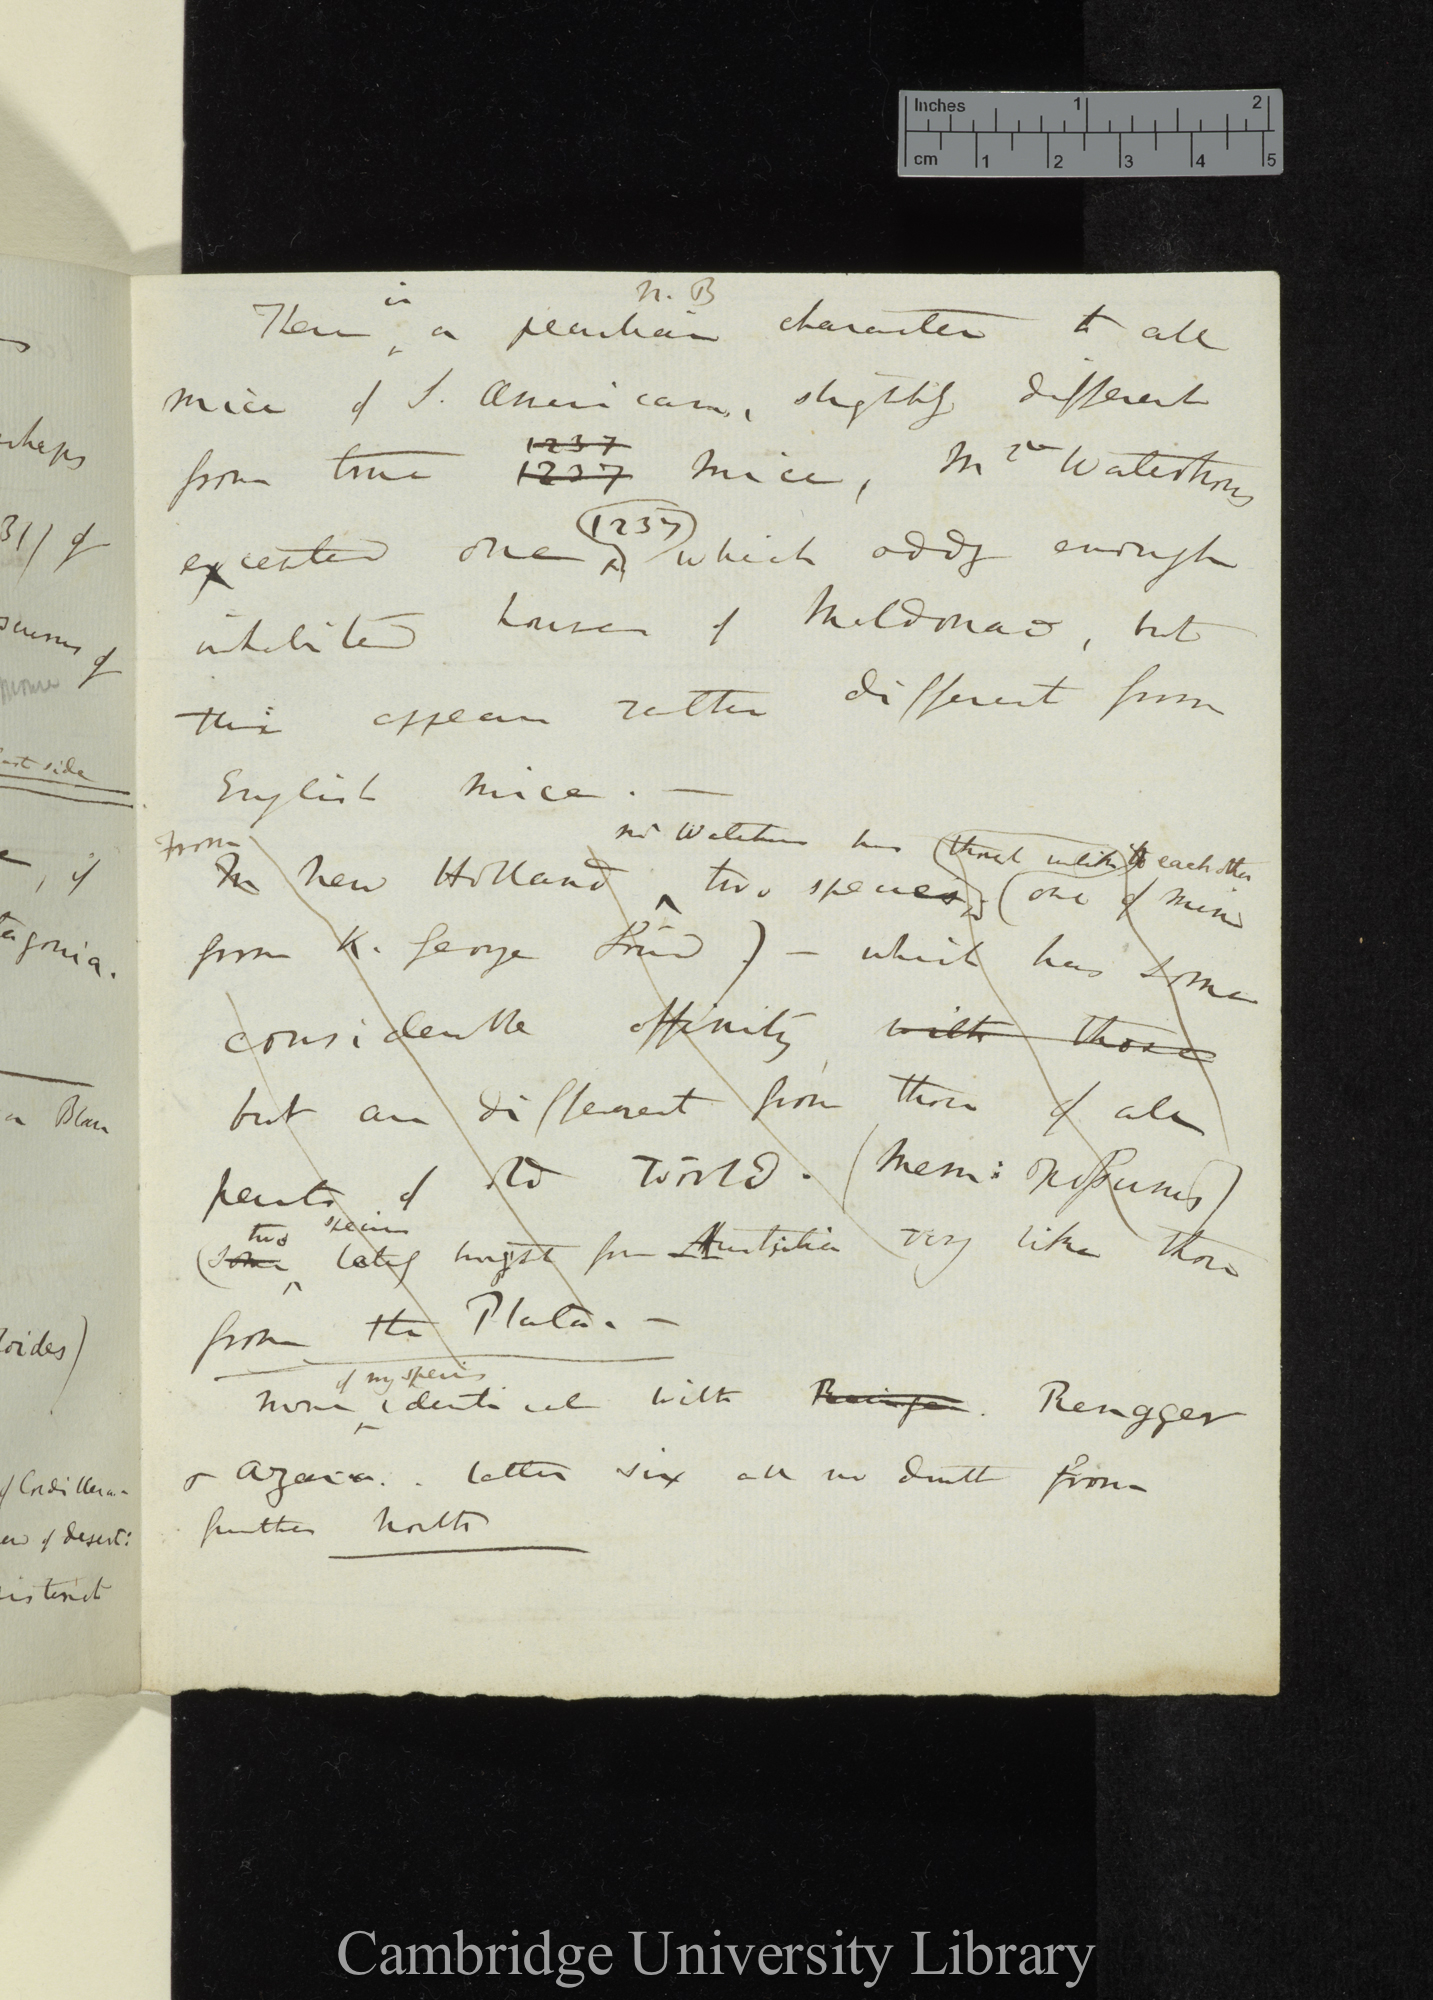 Inches 1 2
cm 1 2 3 4 5
N. B
There is a peculiar character to all
mice of S. Americans, slightly different
from true 1237 1237 mice, Mr Waterhouse
excepted one (1237) which oddly enough
inhabited houses of Maldonado, but
this appears rather different from
English mice. —
From
In New Holland Mr Waterhouse has two species, (though unlike to each other (one of mine
from K. George Sound) — which has some
considerable affinity with those
but are different from those of all
parts of old World. (Mem: opossums)
(some two species lately brought from Australia very like those
from the Plata. —
None of my species identical with Rengger
& Azara. latter six all no doubt from
further North
haps
31) of
of
mouse
east side
, if
tagonia.
Blan
oides)
of Cordillera -
of desert:
istinct
Cambridge University Library